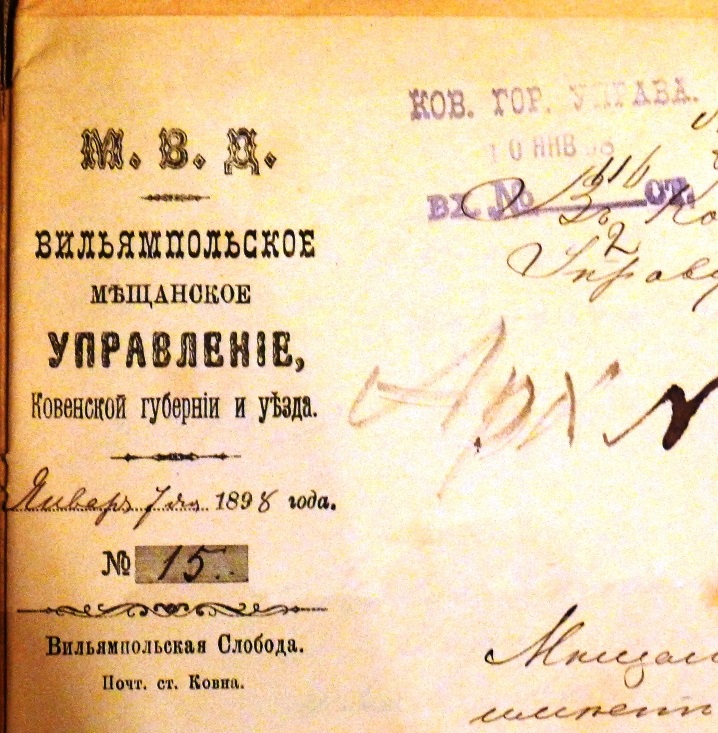 М. В. Д.
ВИЛЬЯМПОЛЬСКОЕ
МѢЩАНСКОЕ
УПРАВЛЕНІЕ,
Ковенской губерніи и уѣзда.
Январь 7 дня 1898 года.
№ 15.
Вильямпольская Слобода.
Почт. ст. Ковна.
КОВ. ГОР. УПРАВА.
10 ЯНВ 98
ВХ. № 116 СТ. 2
Въ Ко
Управу
Арх N
Мѣщан